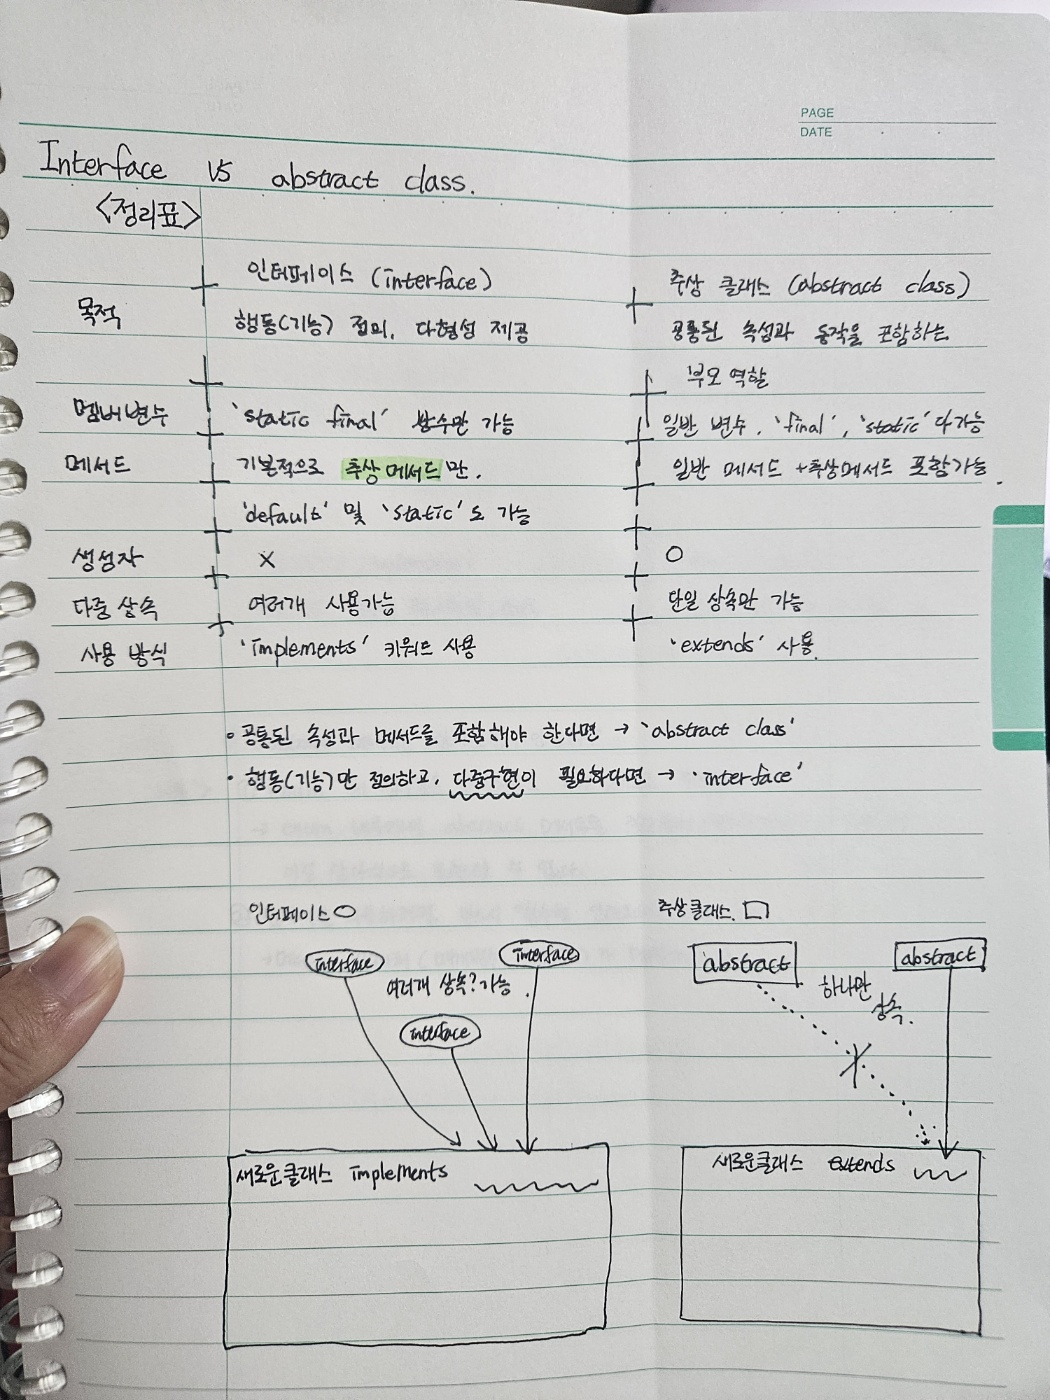 PAGE
DATE
Interface vs abstract class.
<정리표>
인터페이스 (interface) 추상 클래스 (abstract class)
목적 행동(기능) 정의, 다형성 제공 공통된 속성과 동작을 포함하는
부모 역할
멤버변수 'static final' 상수만 가능 일반 변수, 'final', 'static' 다 가능
메서드 기본적으로 추상 메서드만. 일반 메서드 + 추상메서드 포함가능.
'default' 및 'static'도 가능
생성자 X O
다중 상속 여러개 사용가능 단일 상속만 가능
사용 방식 'implements' 키워드 사용 'extends' 사용.
• 공통된 속성과 메서드를 포함해야 한다면 → 'abstract class'
• 행동(기능)만 정의하고, 다중구현이 필요하다면 → 'interface'
인터페이스 추상클래스
interface interface abstract abstract
여러개 상속?가능. 하나만
상속.
interface
새로운클래스 implements 새로운클래스 extends